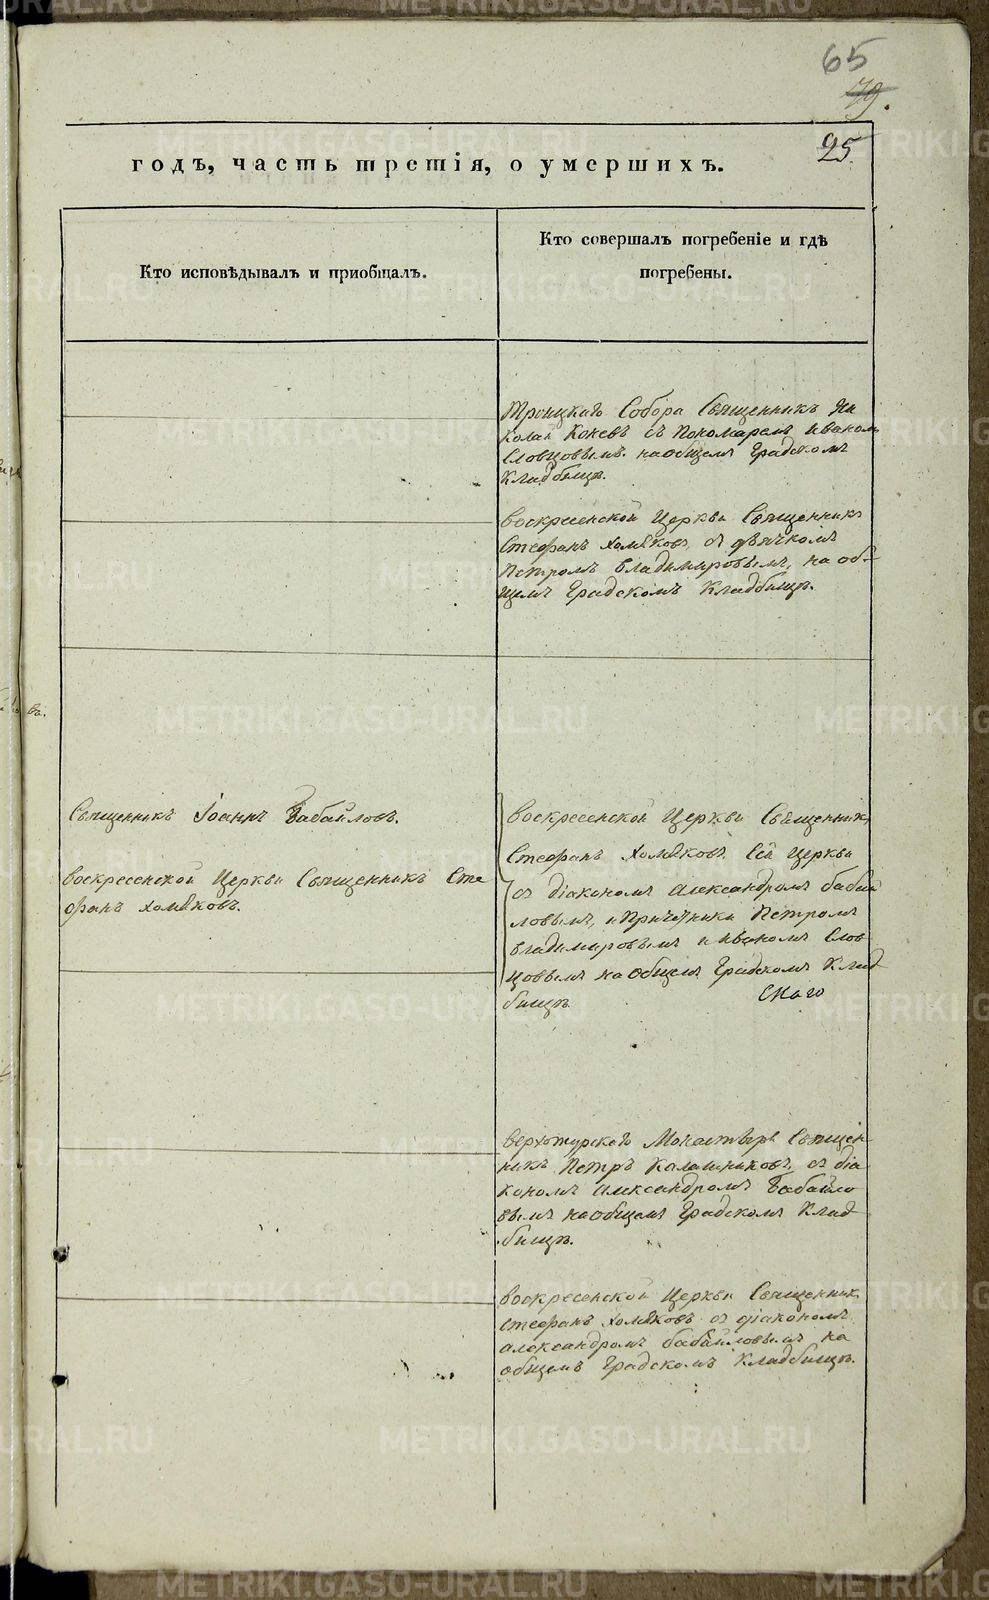 65
79.
25
годъ, часть третія, о умершихъ.
Кто исповѣдывалъ и пріобщалъ.
Кто совершалъ погребеніе и гдѣ
погребены.
Троицкаго Собора Священникъ Ни
колай Коневъ съ Пономаремъ Иваном
Словцовымъ на общемъ Градскомъ
Кладбищѣ.
Воскресенской Церкви Священникъ
Стефанъ Хомяковъ, съ дьячкомъ
Петромъ Владимировымъ, на об-
щемъ Градскомъ Кладбищѣ.
Священникъ Іоаннъ Бабайловъ.
Воскресенской Церкви Священникъ Сте
фанъ Хомяковъ.
Воскресенской Церкви Священникъ
Стефанъ Хомяковъ. Сей Церкви
съ діакономъ Александромъ Бабай
ловымъ, и Причетники Петромъ
Владимировымъ и Иваномъ Слов
цовымъ на общемъ Градскомъ Клад
бищѣ
Верхотурскаго Монастыря Священ-
никъ Петръ Калашниковъ, съ діа
кономъ Александромъ Бабайло
вымъ на общемъ Градскомъ Клад
бищѣ.
Воскресенской Церкви Священник
Стефанъ Хомяковъ съ діакономъ
Александромъ Бабайловымъ на
общемъ Градскомъ Кладбищѣ.
METRIKI.GASO-URAL.RU